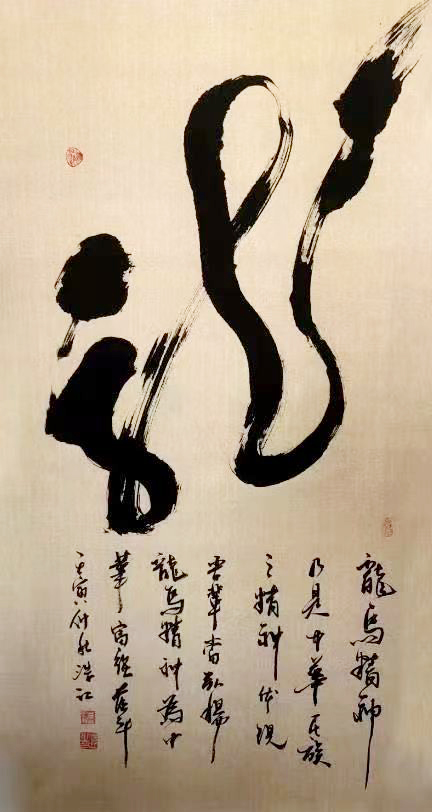 龍
龍馬精神
乃是中華民族
之精神体現
吾輩當弘揚
龍馬精神為中
華富強奋斗
壬寅仲秋浩江